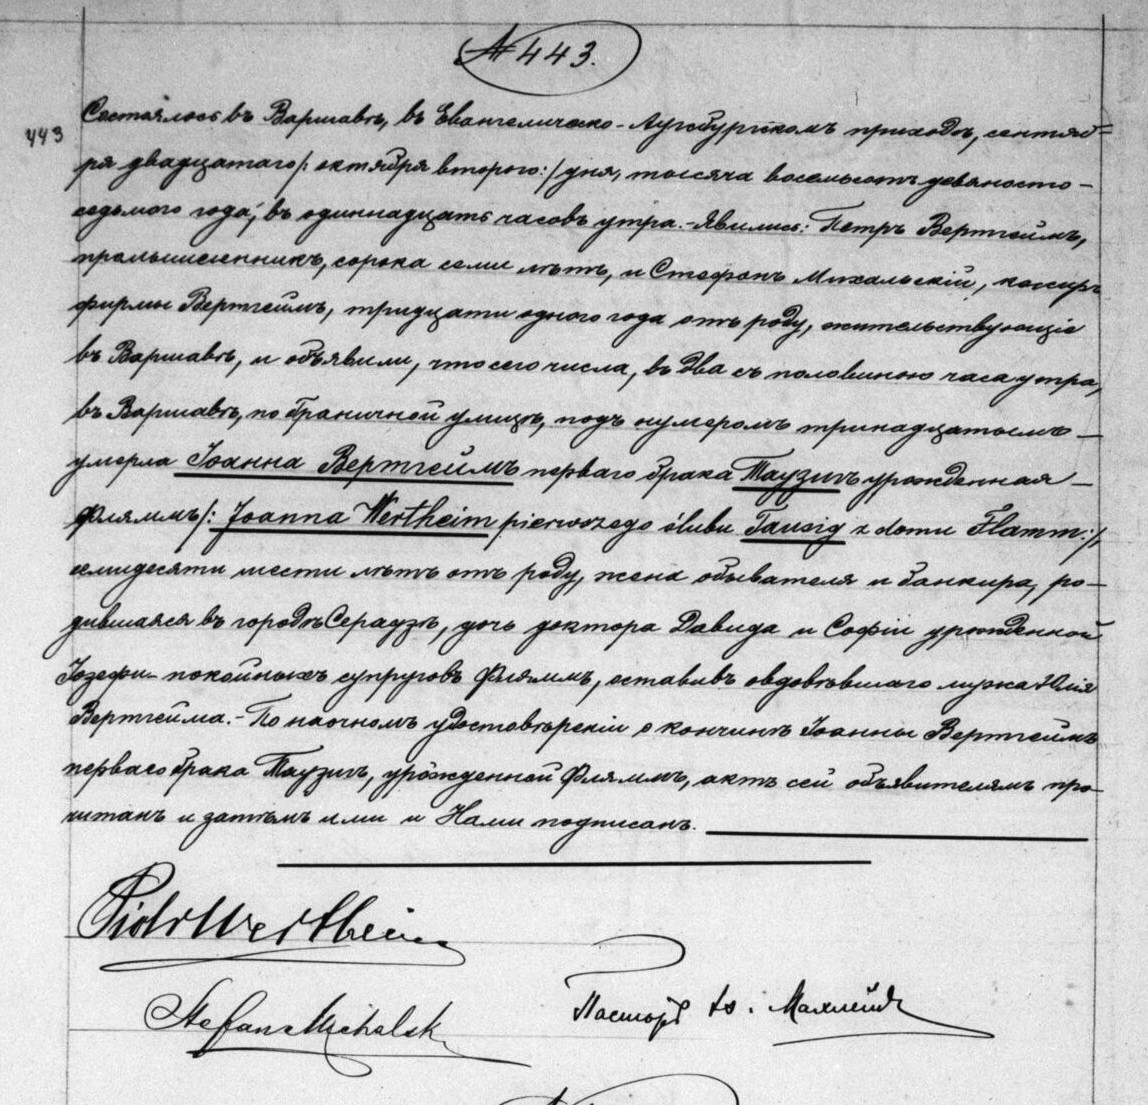 № 443.
443
Состоялось въ Варшавѣ, въ Евангелическо-Аугсбургскомъ приходѣ, сентяб=
ря двадцатаго /: октября втораго :/ дня, тысяча восемьсотъ девяносто-
седьмого года, въ одиннадцать часовъ утра.- Явились: Петръ Вертгеймъ,
промышленникъ, сорока семи лѣтъ, и Стефанъ Михальскій, кассиръ
фирмы Вертгеймъ, тридцати одного года отъ роду, жительствующіе
въ Варшавѣ, и объявили, что сего числа, въ два съ половиною часа утра,
въ Варшавѣ, по Граничной улицѣ, подъ нумеромъ тринадцатымъ —
умерла Іоанна Вертгеймъ перваго брака Таузигъ урожденная —
Фляммъ /: Joanna Wertheim pierwszego ślubu Tausig z domu Flamm :/,
семидесяти шести лѣтъ отъ роду, жена обывателя и банкира, ро-
дившаяся въ городѣ , дочь доктора Давида и Софіи урожденной
покойныхъ супруговъ Фляммъ, оставивъ овдовѣвшаго мужа Юлія
Вертгейма.- По наочномъ удостовѣреніи о кончинѣ Іоанны Вертгеймъ
перваго брака Таузигъ, урожденной Фляммъ, актъ сей объявителямъ про-
читанъ и затѣмъ ими и Нами подписанъ.
Piotr Wertheim
Stefan Michalski
Пасторъ